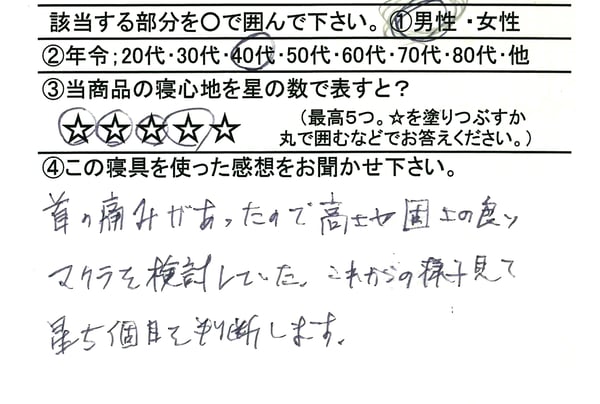 該当する部分を〇で囲んで下さい。①男性・女性
②年令；20代・30代・40代・50代・60代・70代・80代・他
③当商品の寝心地を星の数で表すと？
☆☆☆☆☆
（最高5つ。☆を塗りつぶすか
丸で囲むなどでお答えください。）
④この寝具を使った感想をお聞かせ下さい。
首の痛みがあったので高さや固さの良い
マクラを検討していた。これからの様子見て
星5個目を判断します。